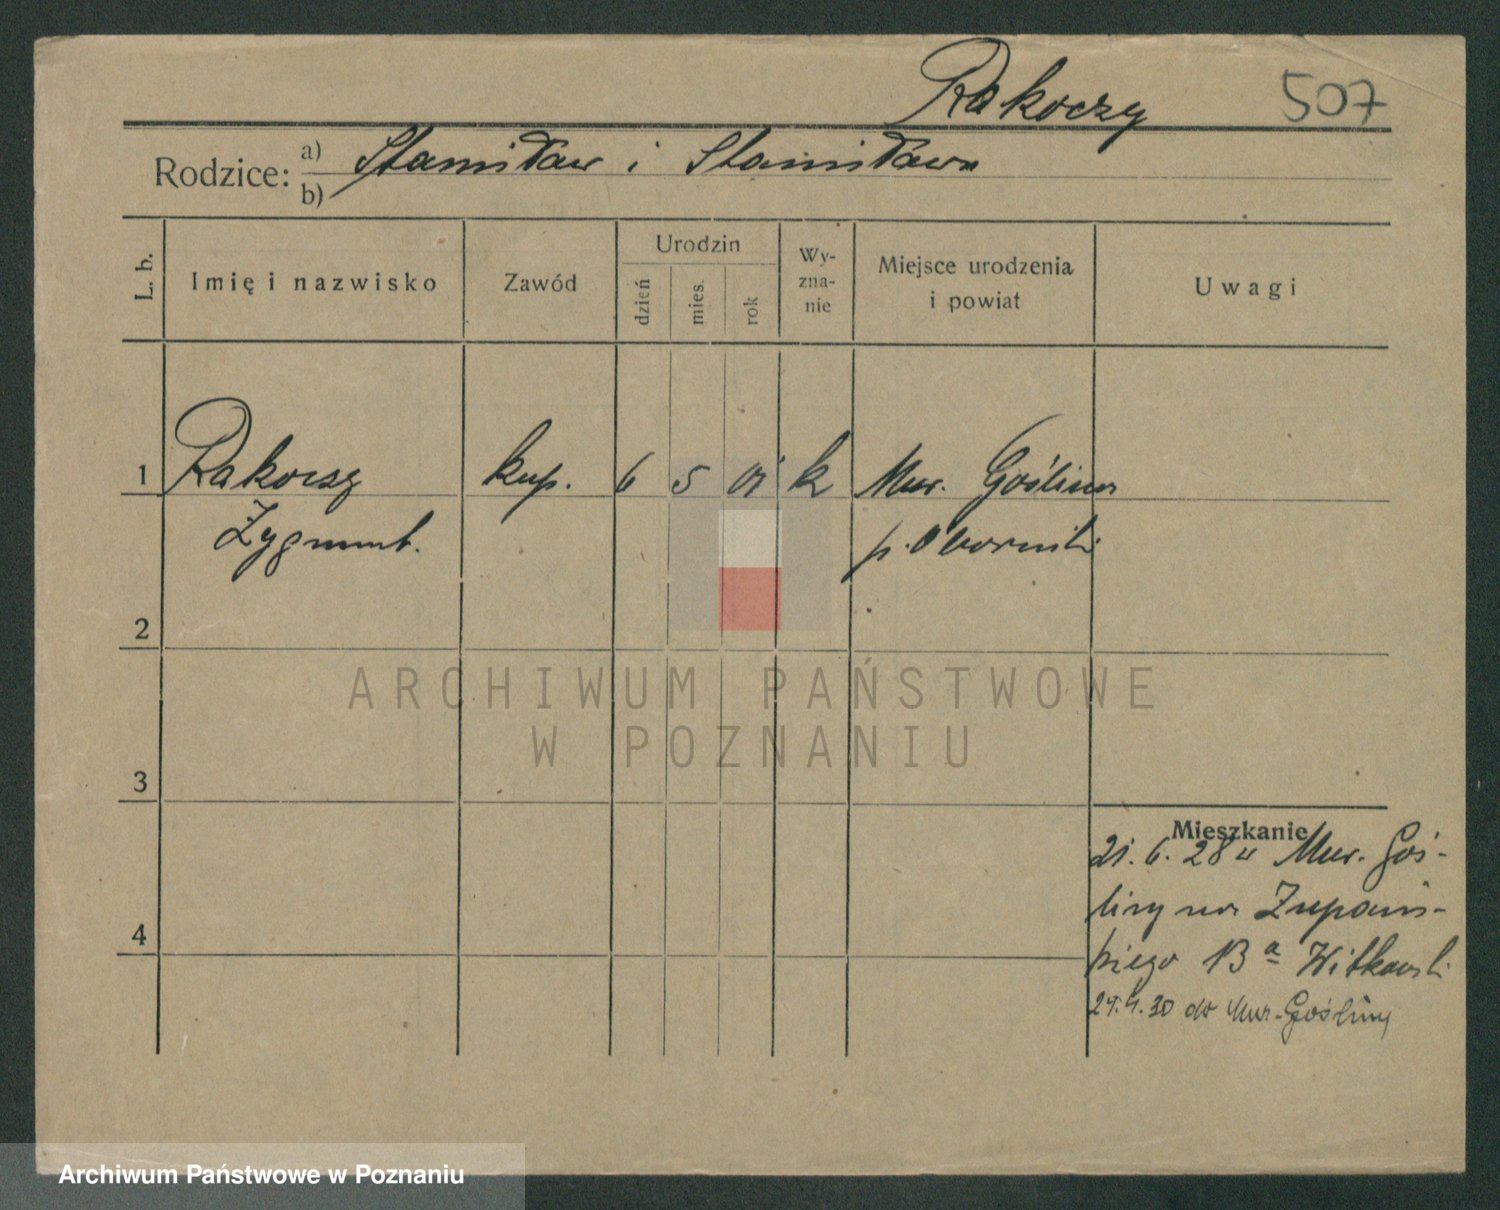 Rakoczy 507
Rodzice: a) Stanisław i Stanisława
b)
L. b. Imię i nazwisko Zawód Urodzin dzień mies. rok Wy-zna-nie Miejsce urodzenia i powiat Uwagi
1 Rakoczy kup. 6 5 01 k Mur. Goślina
Zygmunt. p. Oborniki
2
ARCHIWUM PAŃSTWOWE
W POZNANIU
3
Mieszkanie
21. 6. 28 z Mur. Goś-
liny na Zupańs-
4
kiego 13 a Witkowski
24.4.30 do Mur-Gośliny
Archiwum Państwowe w Poznaniu